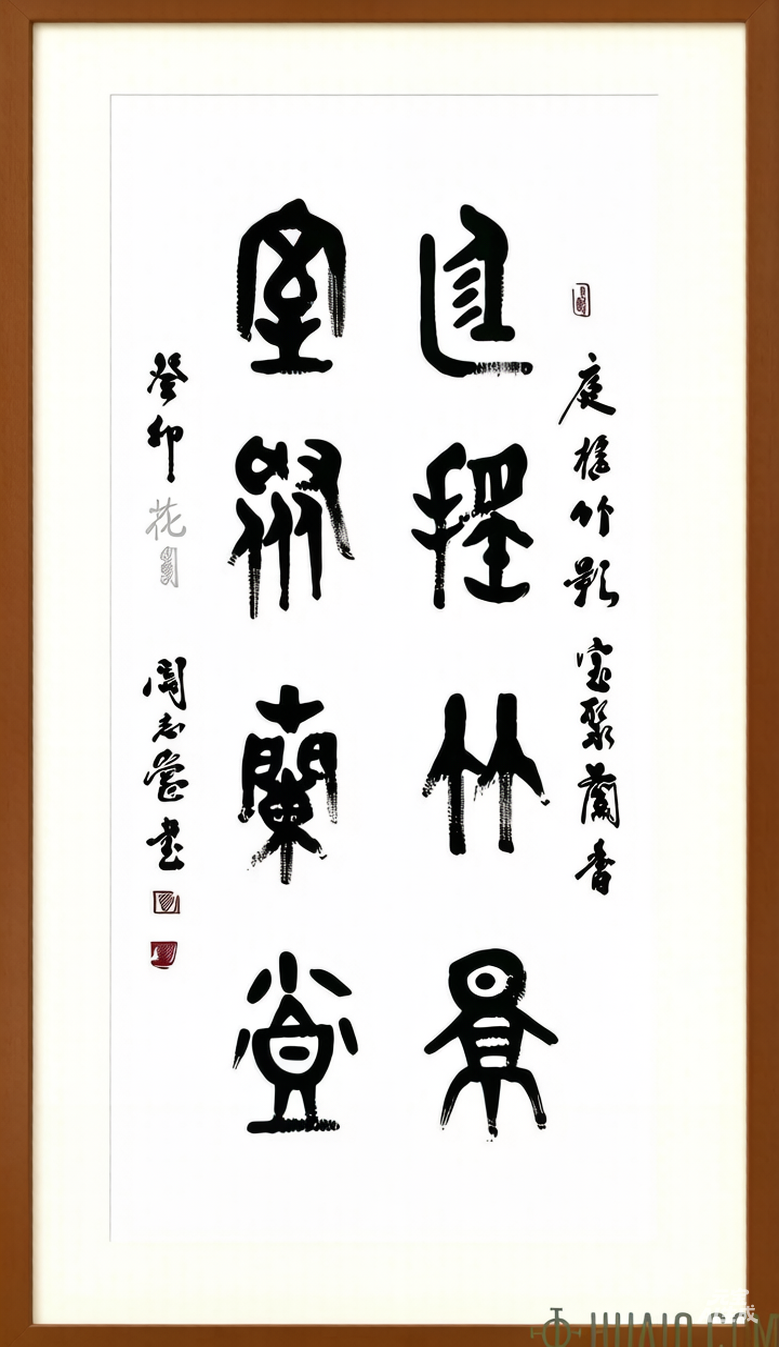 庭搖竹影 室聚蘭香
庭搖竹景
室聚蘭香
癸卯花 周志營書
HUAIO.COM